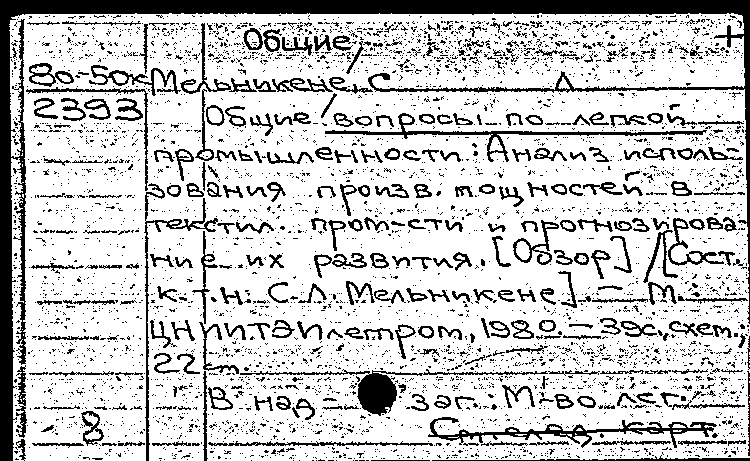 Общие
80-50к Мельникене, С Л
2393 Общие вопросы по легкой
промышленности: Анализ исполь-
зования произв. мощностей в
текстил. пром-сти и прогнозирова-
ние их развития. [Обзор] / [Сост.
к.т.н: С.Л. Мельникене]. — М.:
ЦНИИТЭИлегпром, 1980. — 39с, схем.;
22 см.
В над- заг.: М-во лег.
8 См. след. карт.